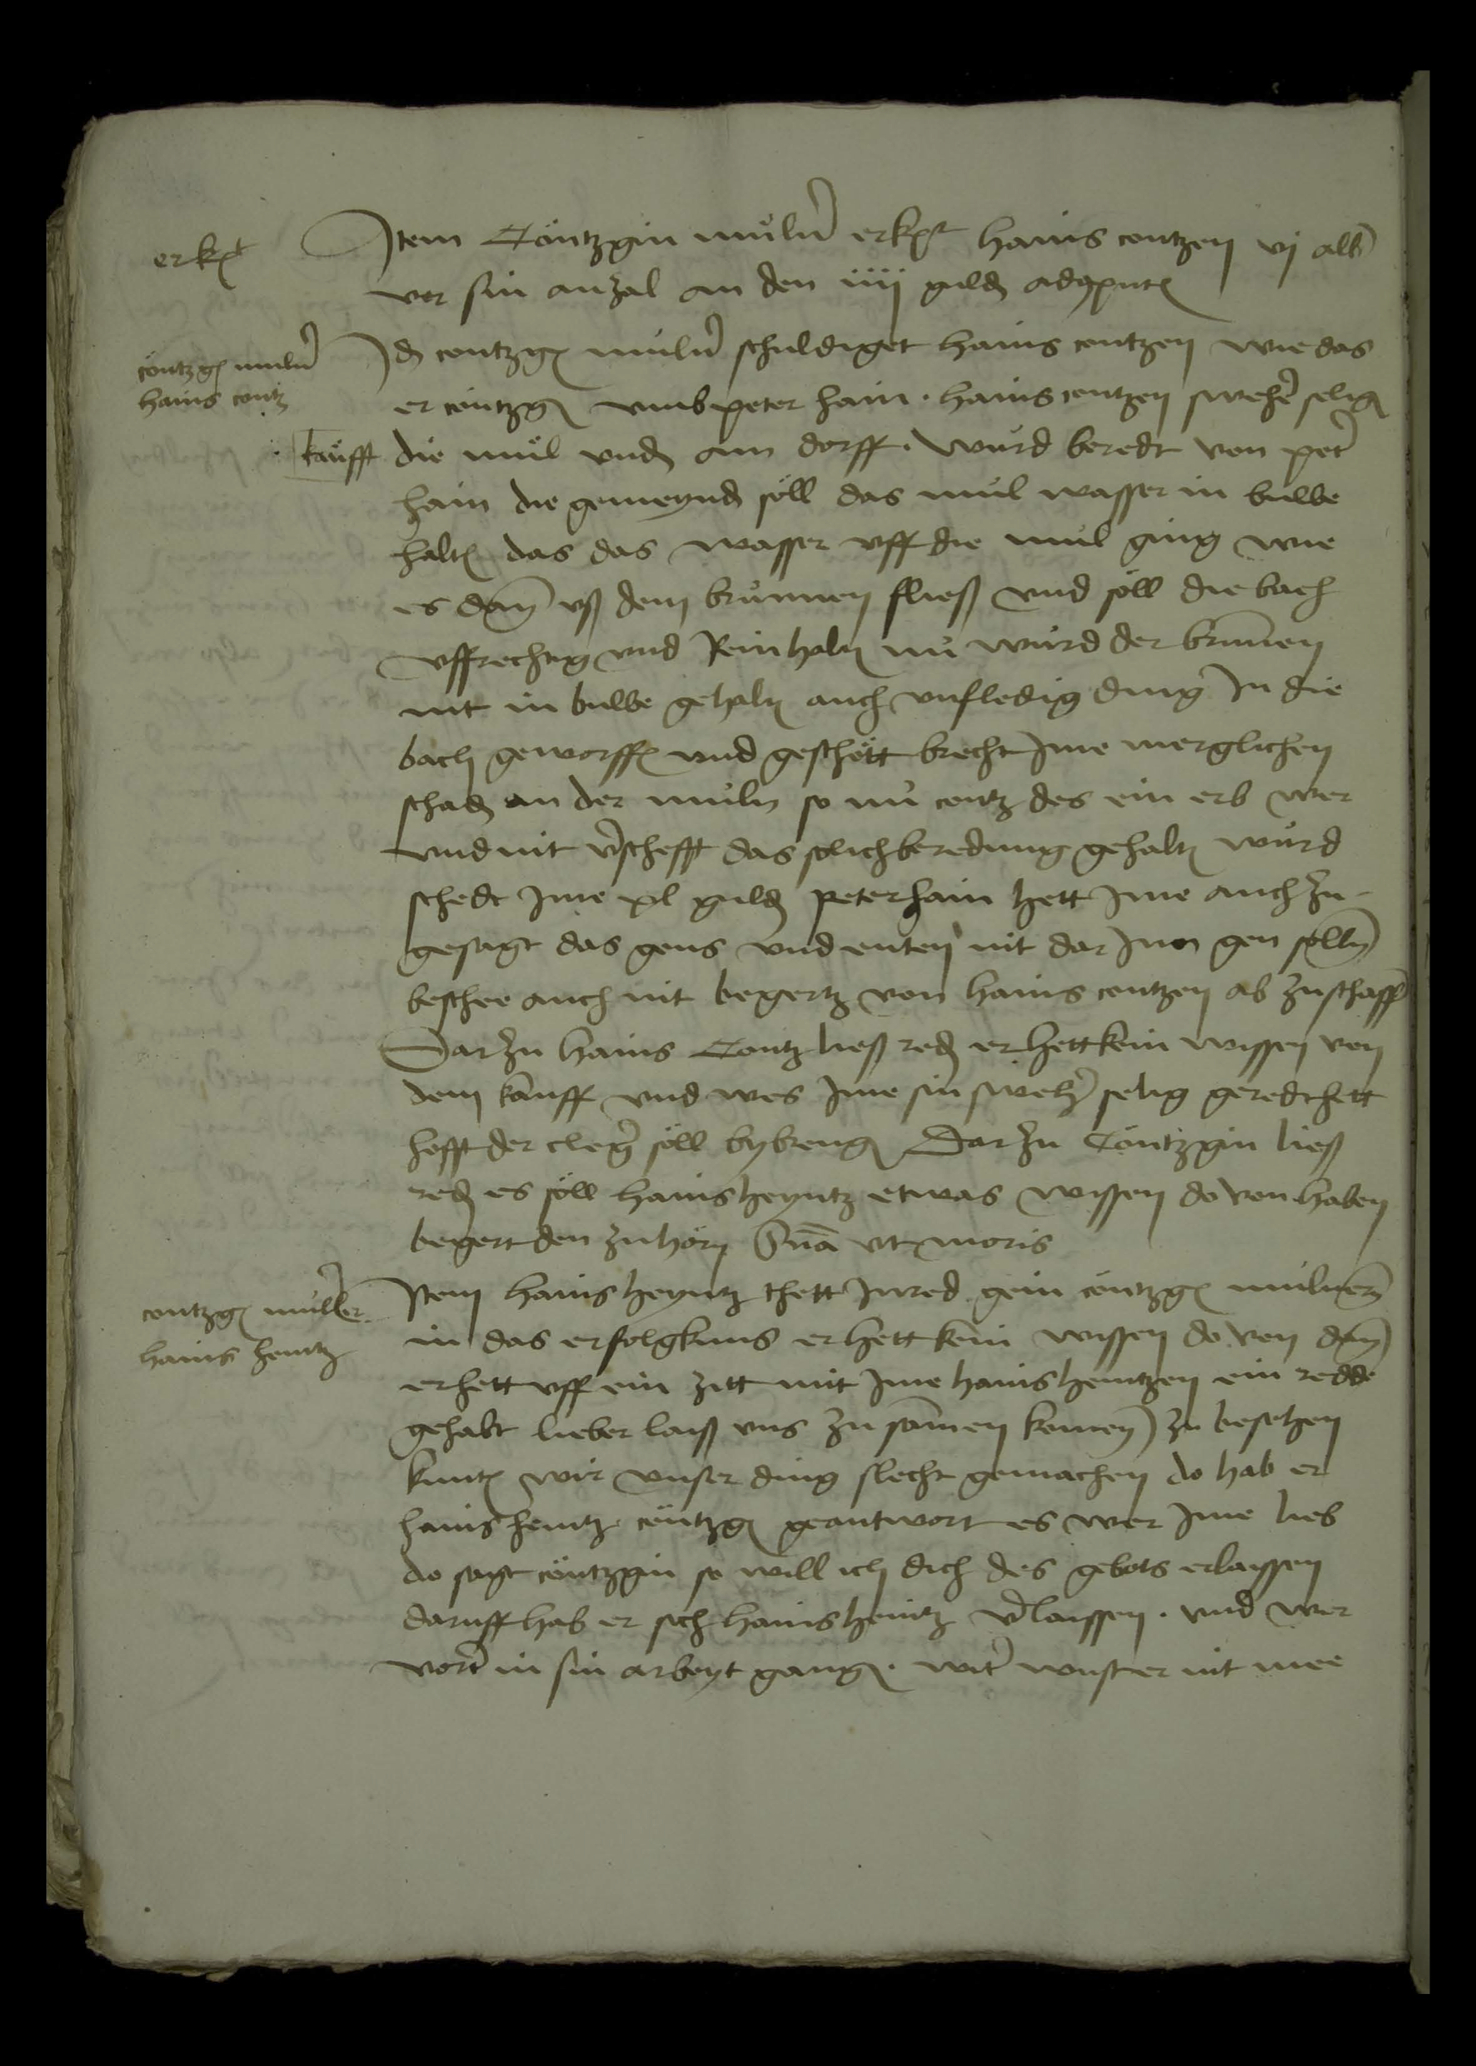 erk&t
Item Contzgin mulner erk&t hans contzen vj alb
vor sin anzal an den iiij guld&
contzg& mulner
hans contz
Id& contzg& mulner schuldiget hans contzen wie das
er contzg& vmb peter hain. hans contzen sweher selig&
kaufft
die mul vnd& am dorff. wurd beredt von peter
hain die gemeynd& soll das mul wasser in bulbe
halt& das das wasser vff die mul ging wie
es dan vß dem brunnen fließ vnd soll die bach
vffrechtig vnd Rein halt& nu wurd der brunnen
nit in bulbe gehalt& auch vnfledig ding In die
bach geworff& vnd geschott brecht Ime merglichen
schad& an der muln so nu contz des ein erb wer
vnd nit verschefft das solich beredung gehalt& wurd
schedt Ime xl guld& peter hain hett Ime auch zu
gesagt das gens vnd enten nit dar Inn gen solln
beschee auch nit begertz von hans contzen ab zuschaff&
Dar zu hans Contz ließ red& er hett kein wissen von
dem kauff vnd wes Ime sin sweher selig geredt hett
hofft der cleger soll bybreng& Dar zu Contzgin ließ
red& es soll hans heyntz etwas wissen do von haben
begert den zu horn vt moris
contzg& muller
hans hentz
Item hans heyntz thett Inred gein contzg& mulnern
in das erfolgknus er hett kein wissen do von dan
er hett vff ein zitt mit Ime hans hentzen ein redde
gehabt lieber laiß vns zu samen komen zu besehen
kunt& wir vnser ding slecht gemachen do hab er
hans hentz contzg& geantwort es wer Ime lieb
do sagt contzgin so will ich dich des gebots erlaissen
daruff hab er sich hans hentz verlaissen. vnd wer
vort in sin arbeyt gang&. witer wust er nit mee